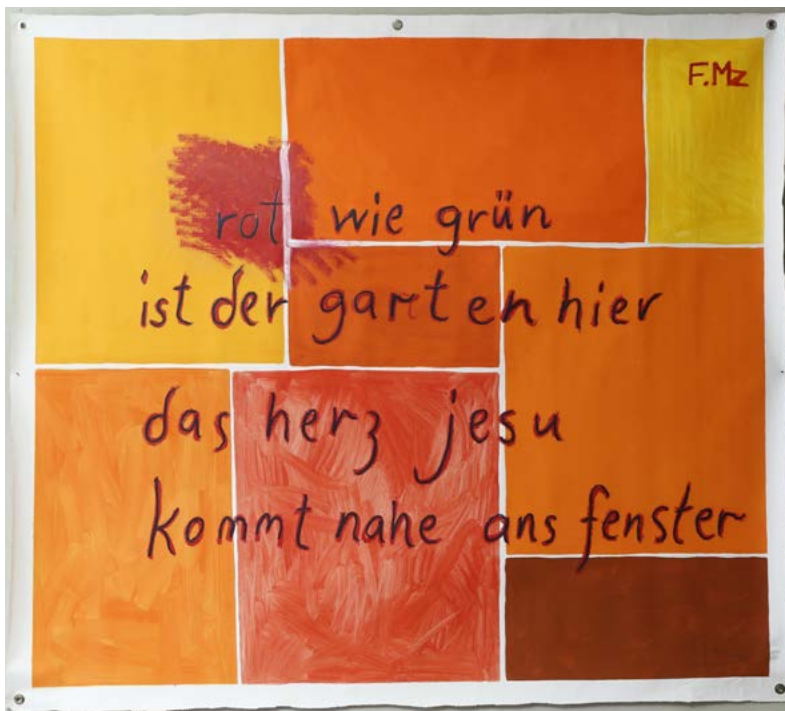 F.Mz
rot wie grün
ist der garten hier
das herz jesu
kommt nahe ans fenster